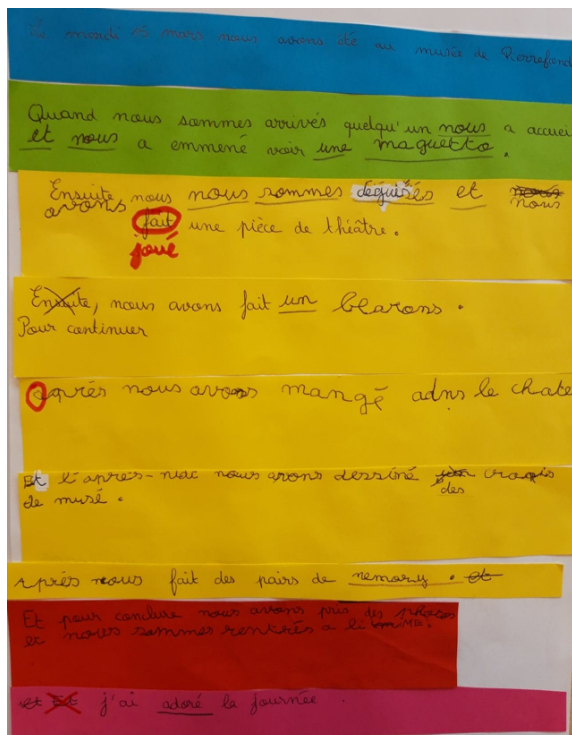 mardi 15 mars nous avons été au musée de Pierrefond
Quand nous sommes arrivés quelqu'un nous a accuei
et nous a emmené voir une maguetto.
Ensuite nous nous sommes déguisés et nous
avons fait une pièce de théâtre.
joué
Ensuite, nous avons fait un blarons.
Pour continuer
après nous avons mangé adns le chate
Et l'après-midi nous avons dessiné des
de musé.
Après nous fait des pairs de nemory. et
Et pour conclure nous avons pris des photos
et nous sommes rentrés a
et Et j'ai adoré la journée.